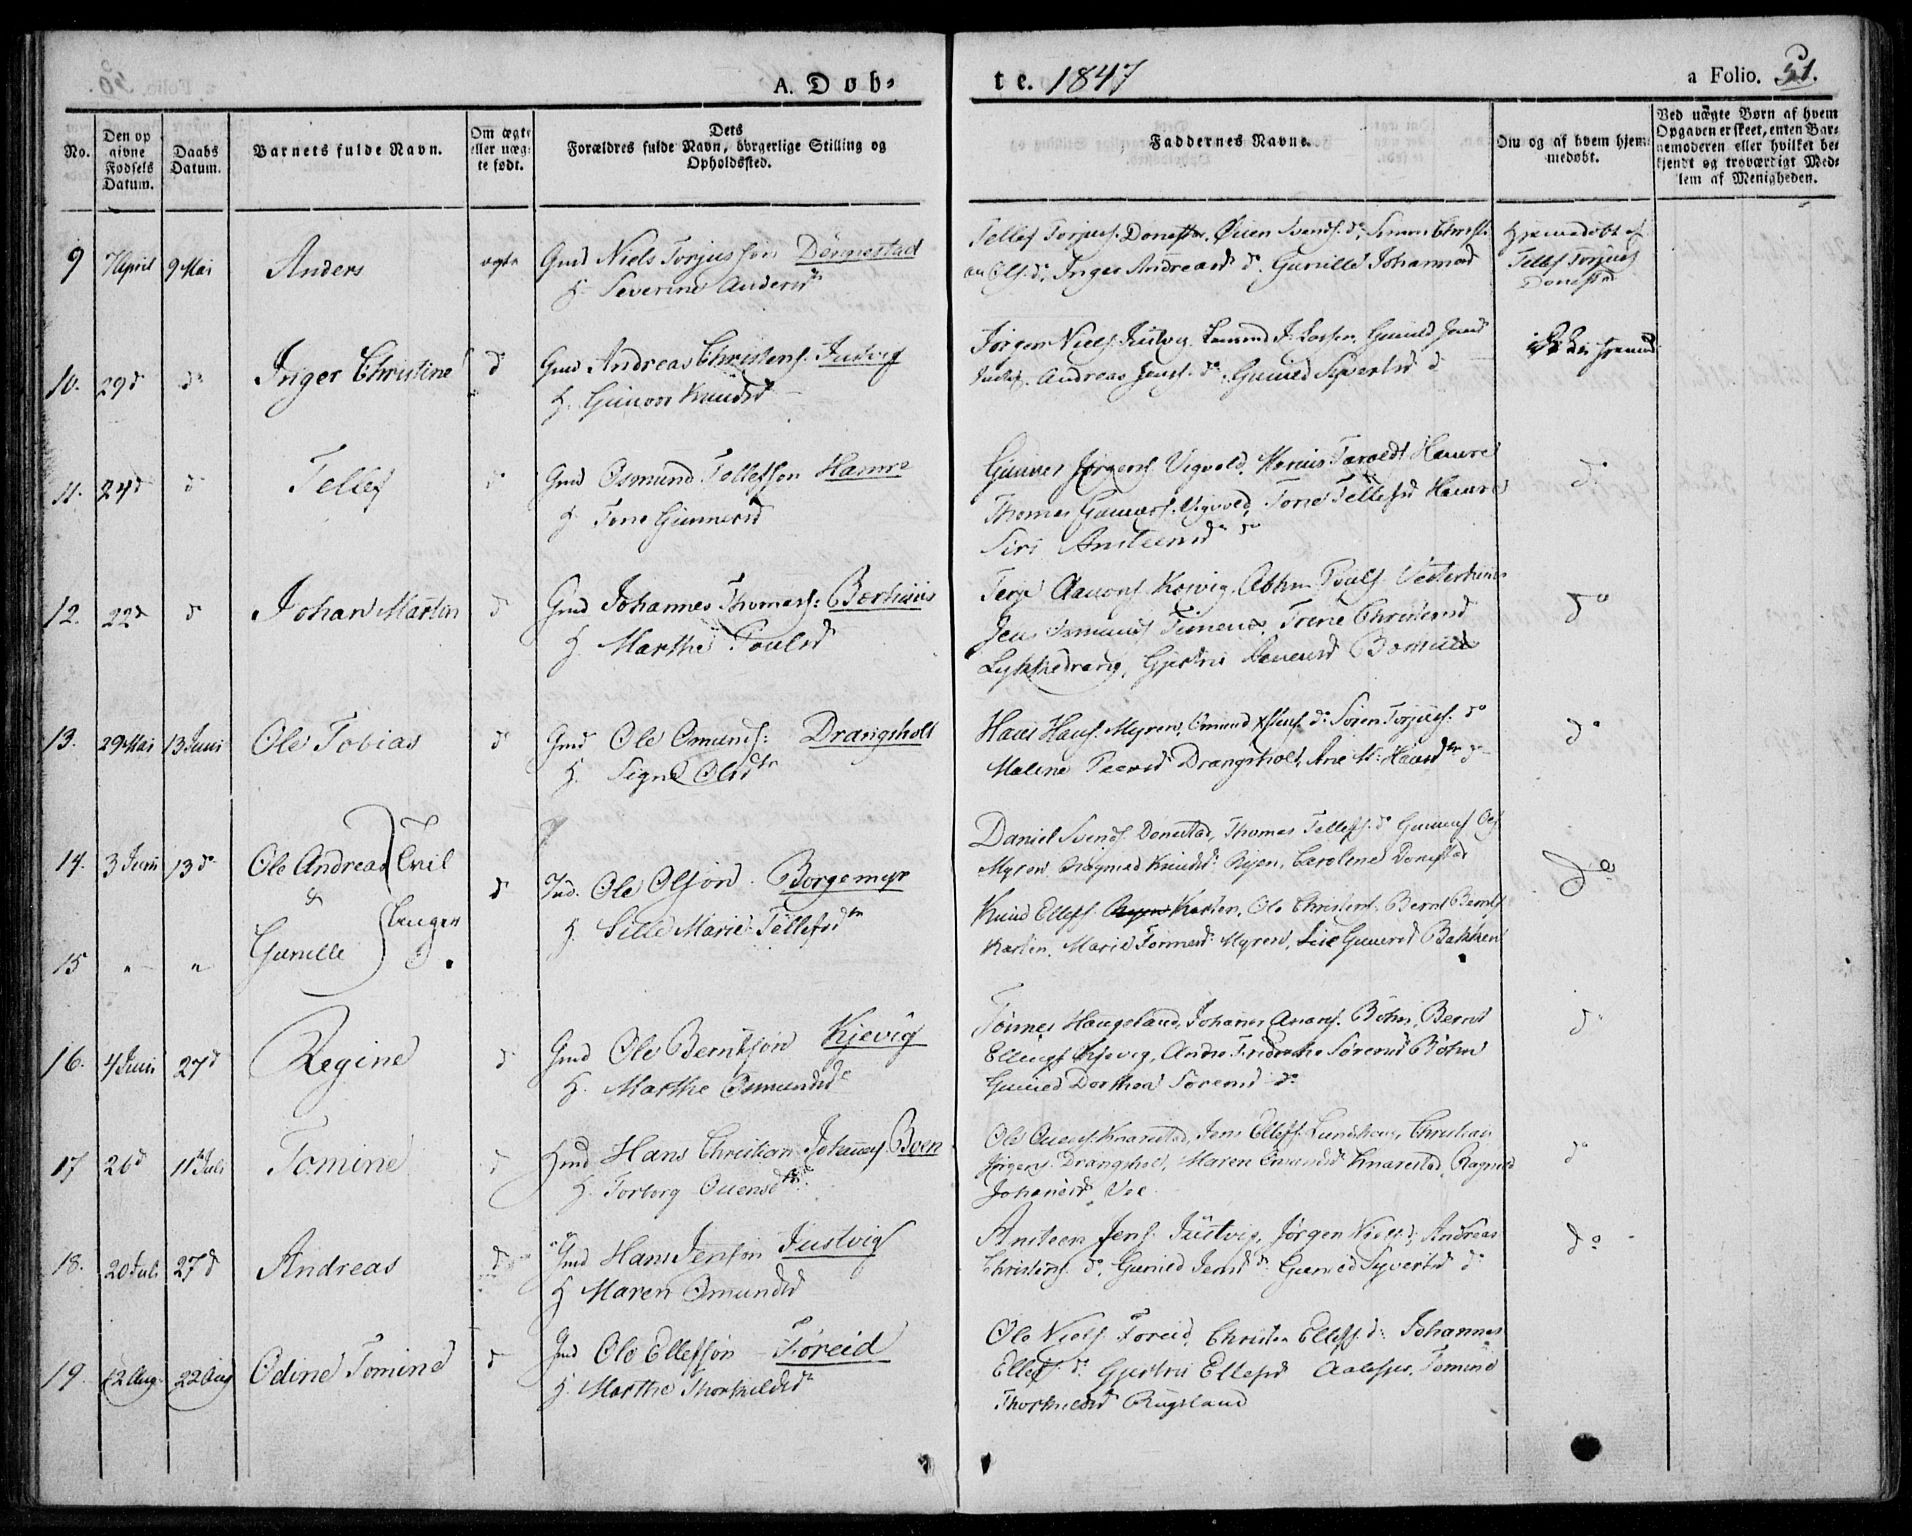 A. Døb=
te. 1847
a Folio. 51.
No.
Den opgivne Fødsels Datum.
Daabs Datum.
Barnets fulde Navn.
Om ægte eller uægte født.
Dets Forældres fulde Navn, borgerlige Stilling og Opholdssted.
Faddernes Navne.
Om og af hvem hjemmedøbt.
Ved uægte Børn af hvem Opgaven er skeet, enten Barnemoderen eller hvilket bekjendt og troværdigt Medlem af Menigheden.
9 7 April 9 Mai Anders ægte Gmd Niels Torjussøn Dønnestad
H. Severine Andersd
Tellef Torjuss. Donestad, Øuen Svends. do, Simon Christi-
an Ols. do, Inger Andreasd do. Gunille Johannesd
Hjemmedøbt af
Tellef Torjus
Donestad
10. 29 do do Inger Christine do Gmd Andreas Christens. Justvig
H. Gunvor Knudsd
Jørgen Niels. Justvig, Gunild Jensd
Justv. Andreas Jens. do. Gunild Syvertsd do
11. 24 do do Tellef do Gmd Osmund Tellefsøn Hamre
H. Tone Gunnersd
Gunner Jørgens. Vigvold, Taralds. Hamre
Thomas Gunners. Vigvold, Tone Tellefsd Hamre
Siri Ansteensd do
do
12. 22 do do Johan Martin do Gmd Johannes Thomass: Bortuus
H. Marthe Poulsd
Terje Aanons. Kovig, Pouls. Vesterhuus
Jens Trine Christensd
Lykkedrang, Gjertru
do
13. 29 Mai 13 Juni Ole Tobias do Gmd Ole Omunds: Drangsholt
H. Signe Olsdtr
Hans Hans. Myren, Omund do Søren Torjuss. do
Malene Peersd Drangsholt, Ane M. Hansdtr do
do
14. 3 Juni 13 do Ole Andreas Tvil
&
15 " " Gunille linger
do Ind. Ole Olsøn Borgemyr
H. Sille Marie Tellefsdtr
Daniel Svends. Donestad, Thomas Tellefs. do Gunner Ols
Myren Ragnild Knudsd. Ryen, Caroline Donestad
Knud Ellefs. Karsten, Ole Christens. Bernt Bernts
Karsten, Marie Tønnesd. Myren, Gunnersd Bakken
do
16. 4 Juni 27 do Regine do Gmd Ole Berntsøn Kjevig
H. Marthe Osmundsd
Tønnes Haugeland, Johannes Aanons. Bøhn, Bernt
Ellings Kjevig, Andre Fredrikke Sørensd Bøhn
Gunild Dorthea Sørensd do
do
17 26 do 11te Juli Tomine do Gmd Hans Christian Johannes. Boen
H. Torborg Ouensdtr
Ole Ouens. Knarestad, Jens Ellefs. Christian
Jørgens. Drangsholt, Maren Omundsd Knarestad, Ragnild
Johannesd Vee
do
18. 20 Juli 27 do Andreas do Gmd Hans Jensøn Justvig
H Maren Omundsd
Ansteen Jens. Justvig, Jørgen Niels. do, Andreas
Christens. do, Gunild Jensd do Gunild Syvertsd do
do
19. 12 Aug. 22 Aug Odine Tomine do Gmd Ole Ellefsøn Føreid
H. Marthe Thorkildsd
Ole Niels. Foreid, Christen Ellefs. do: Johannes
Ellefs. do Gjertru Ellefsd Aalefjær, Tomine
Thorkildsd Rugsland